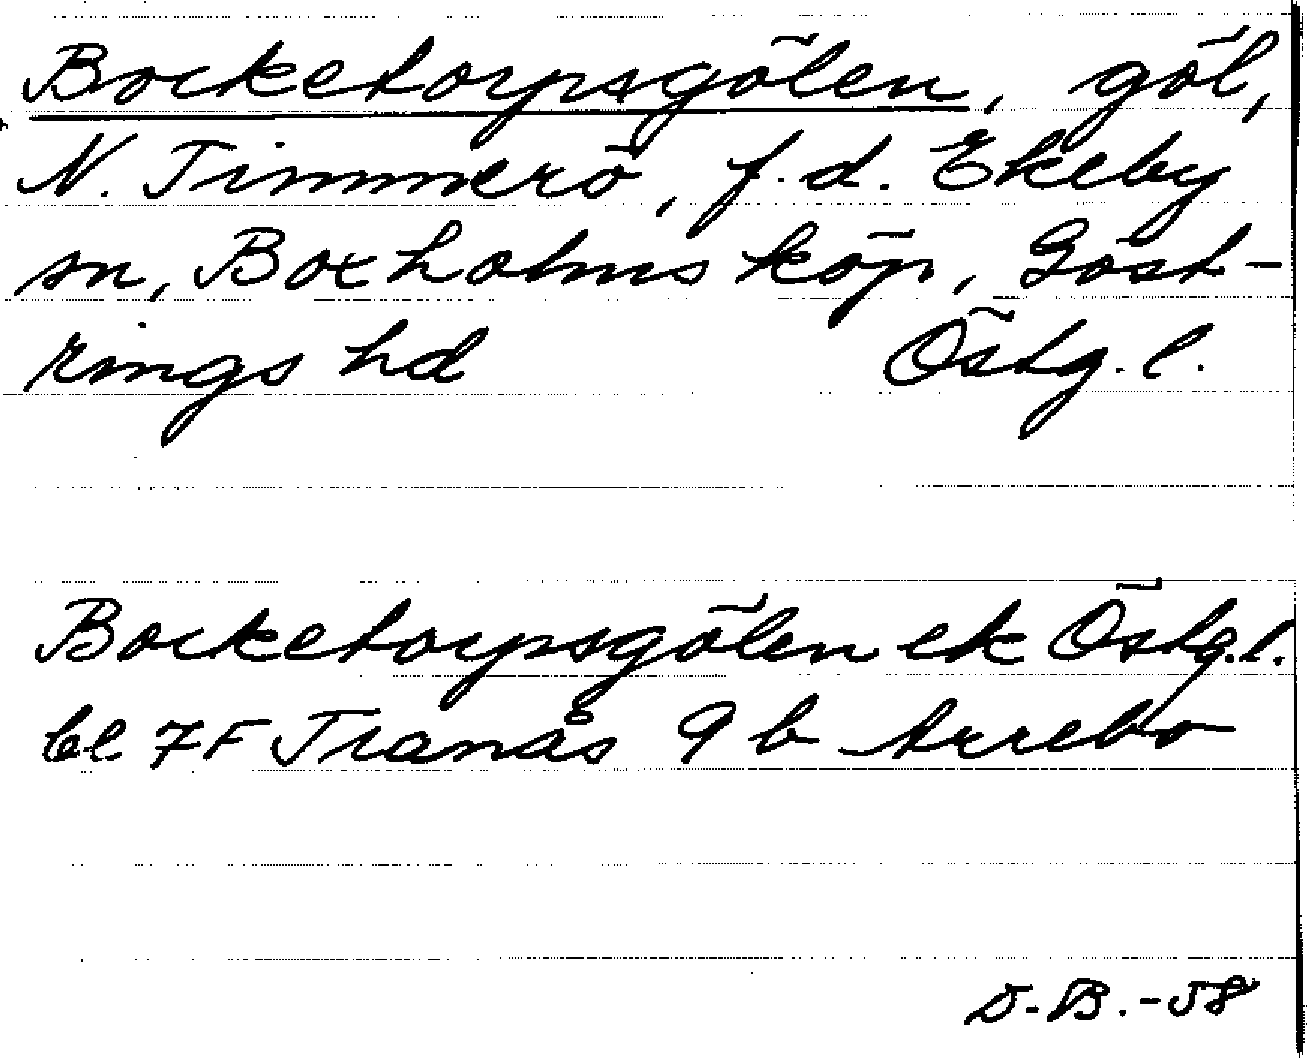 Bocketorpsgölen, göl,
N. Timmerö, f.d. Ekeby
sn, Boxholms köp, Göst-
rings hd Östg. l.
Bocketorpsgölen ek Östg.l.
bl 7F Tranås 9 b Arrebo
D.B.-58